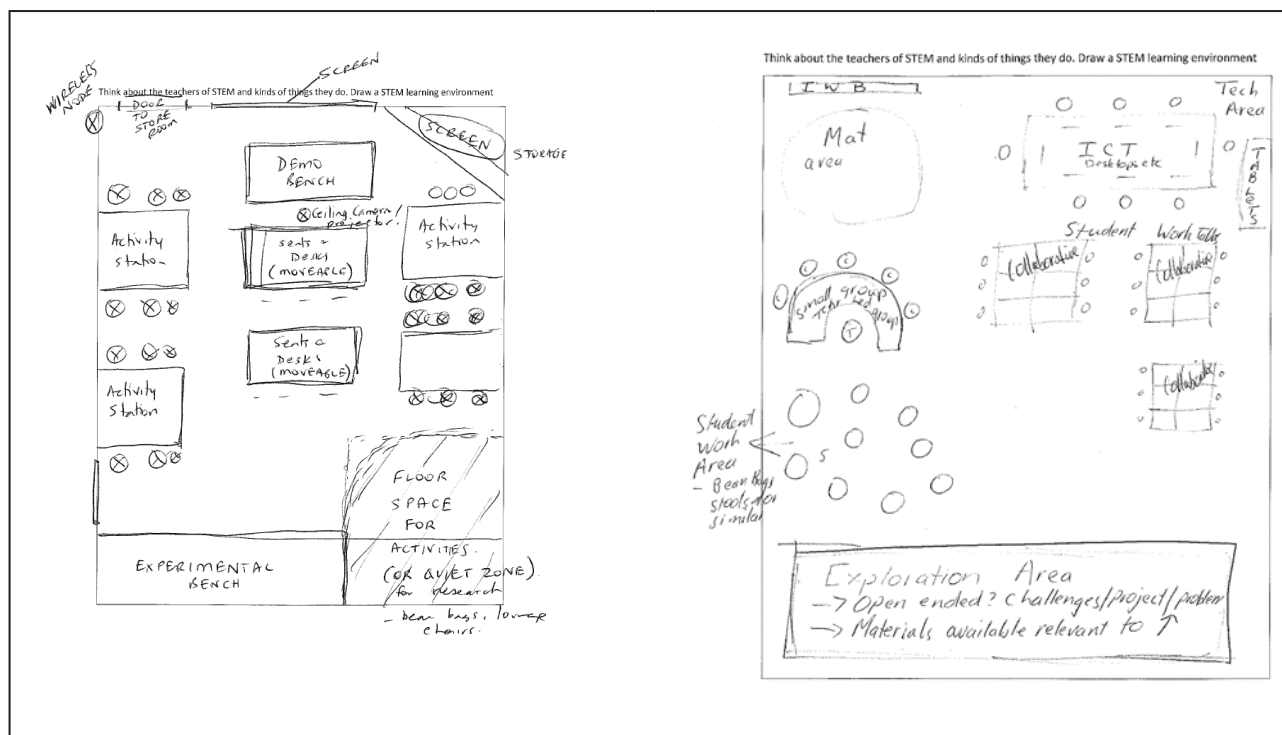 Think about the teachers of STEM and kinds of things they do. Draw a STEM learning environment
WIRELESS
NODE
DOOR
TO
STORE
ROOM
SCREEN
SCREEN
STORAGE
DEMO
BENCH
Ceiling Camera/
projector.
Activity
Station
Seats &
Desks
(MOVEABLE)
Activity
Station
Seats &
Desks
(MOVEABLE)
Activity
Station
FLOOR
SPACE
FOR
ACTIVITIES.
(OR QUIET ZONE)
for research
- bean bags, lounge
chairs.
EXPERIMENTAL
BENCH
Think about the teachers of STEM and kinds of things they do. Draw a STEM learning environment
IWB
Mat
area
Tech
Area
ICT
Desktops etc
TABLETS
Student Work Table
Collaborative
Collaborative
Collaborative
C
C
C
C
C
C
Small group
Tchr led group
T
Student
Work
Area
- Bean Bags
stools or
similar
S
Exploration Area
→ Open ended? Challenges/project/problem
→ Materials available relevant to ↑